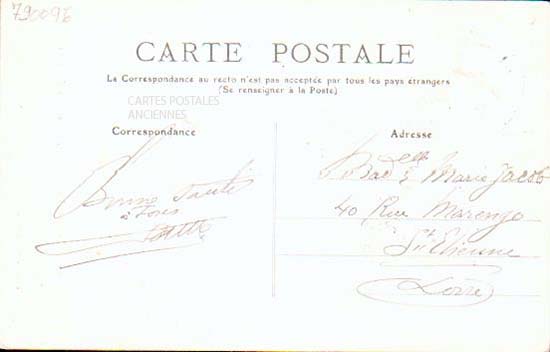 790096
CARTE POSTALE
La Correspondance au recto n'est pas acceptée par tous les pays étrangers
(Se renseigner à la Poste)
CARTES POSTALES
ANCIENNES
Correspondance
Bonne Santé
à tous
Adresse
Marie Jacob
40 Rue Marengo
St Etienne
Loire